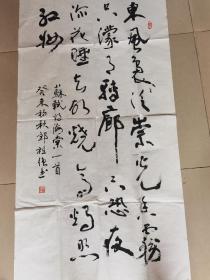 東風裊裊泛崇光香霧
空濛月轉廊只恐夜
深花睡去故燒高燭照
紅妝
蘇軾詩海棠一首
癸未初秋郭祖書